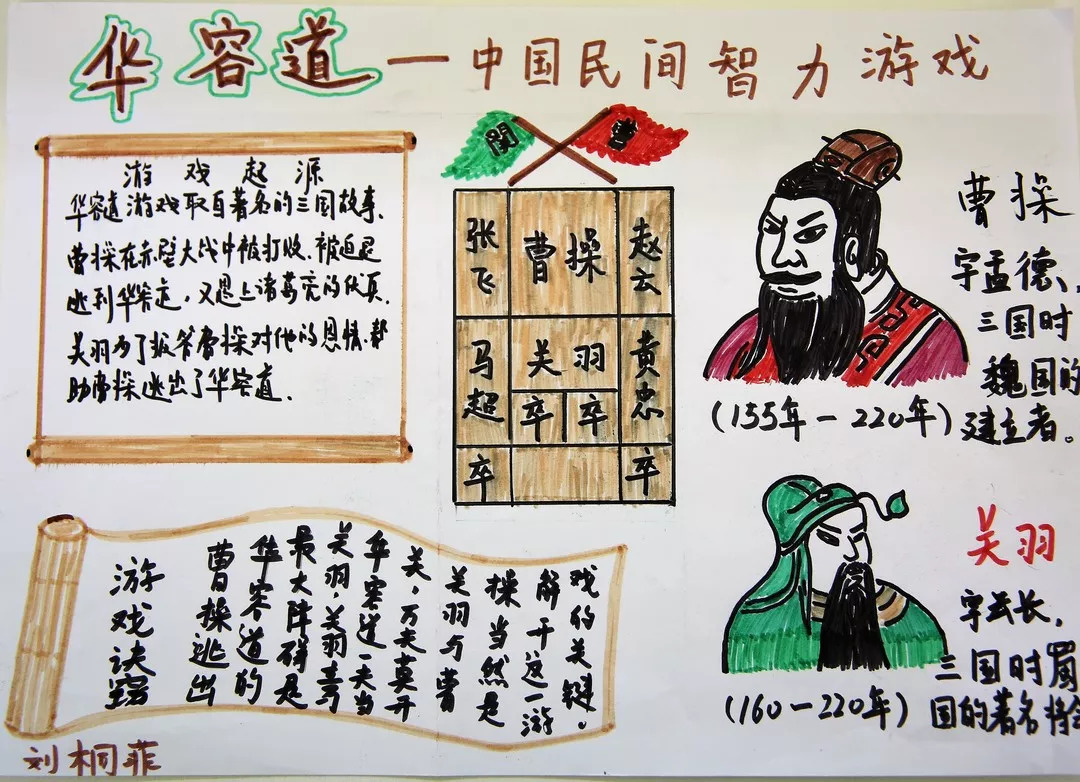 华容道—中国民间智力游戏
関
曹
游戏起源
华容道游戏取自著名的三国故事.
曹操在赤壁大战中被打败.被迫退
逃到华容道,又遇上诸葛亮的伏兵.
关羽为了报答曹操对他的恩情.帮
助曹操逃出了华容道.
张飞
曹操
赵云
马超
关羽
黄忠
卒
卒
卒
卒
曹操
字孟德、
三国时
魏国的
建立者。
(155年—220年)
关羽
字云长,
三国时蜀
国的著名将
(160—220年)
游戏诀窍
曹操逃出
华容道的
最大障碍是
关羽.关羽
华容道一夫当
关,万夫莫开
关羽与曹
操当然是
解开这一游
戏的关键。
刘桐菲